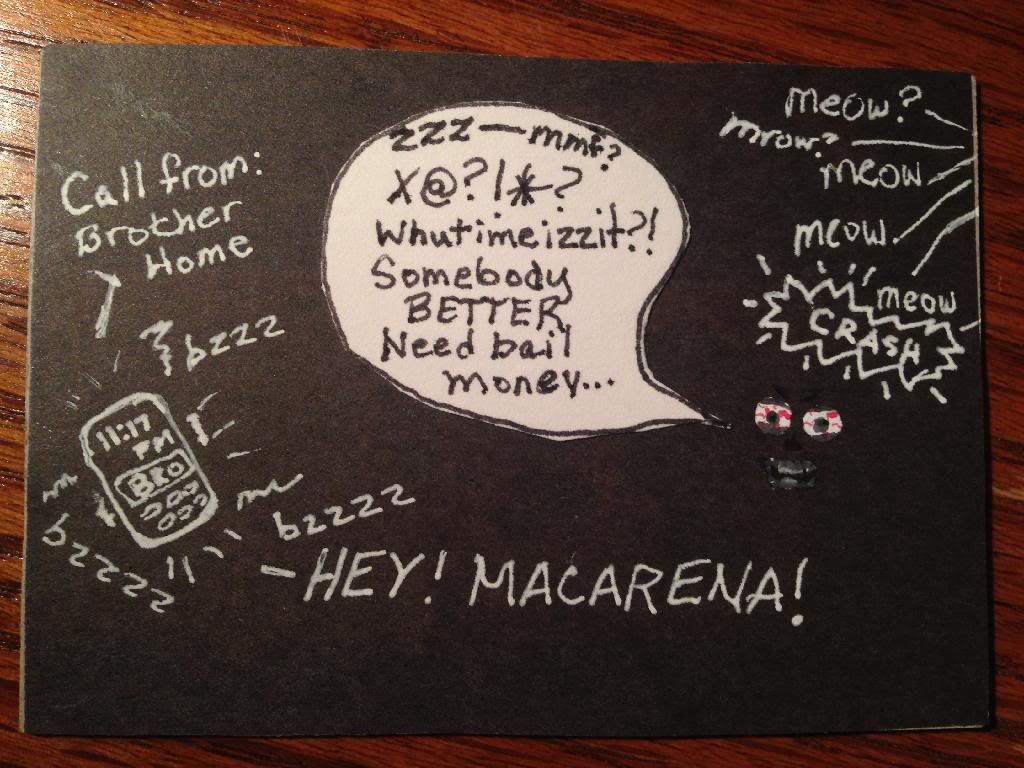 Call from:
Brother
Home
bzzz
11:17
PM
BRO
bzzzz
bzzzz
- HEY! MACARENA!
zzz — mmf?
X@?!*?
Whutimeizzit?!
Somebody
BETTER
Need bail
money...
meow?
mrow?
meow
meow.
meow
CRASH